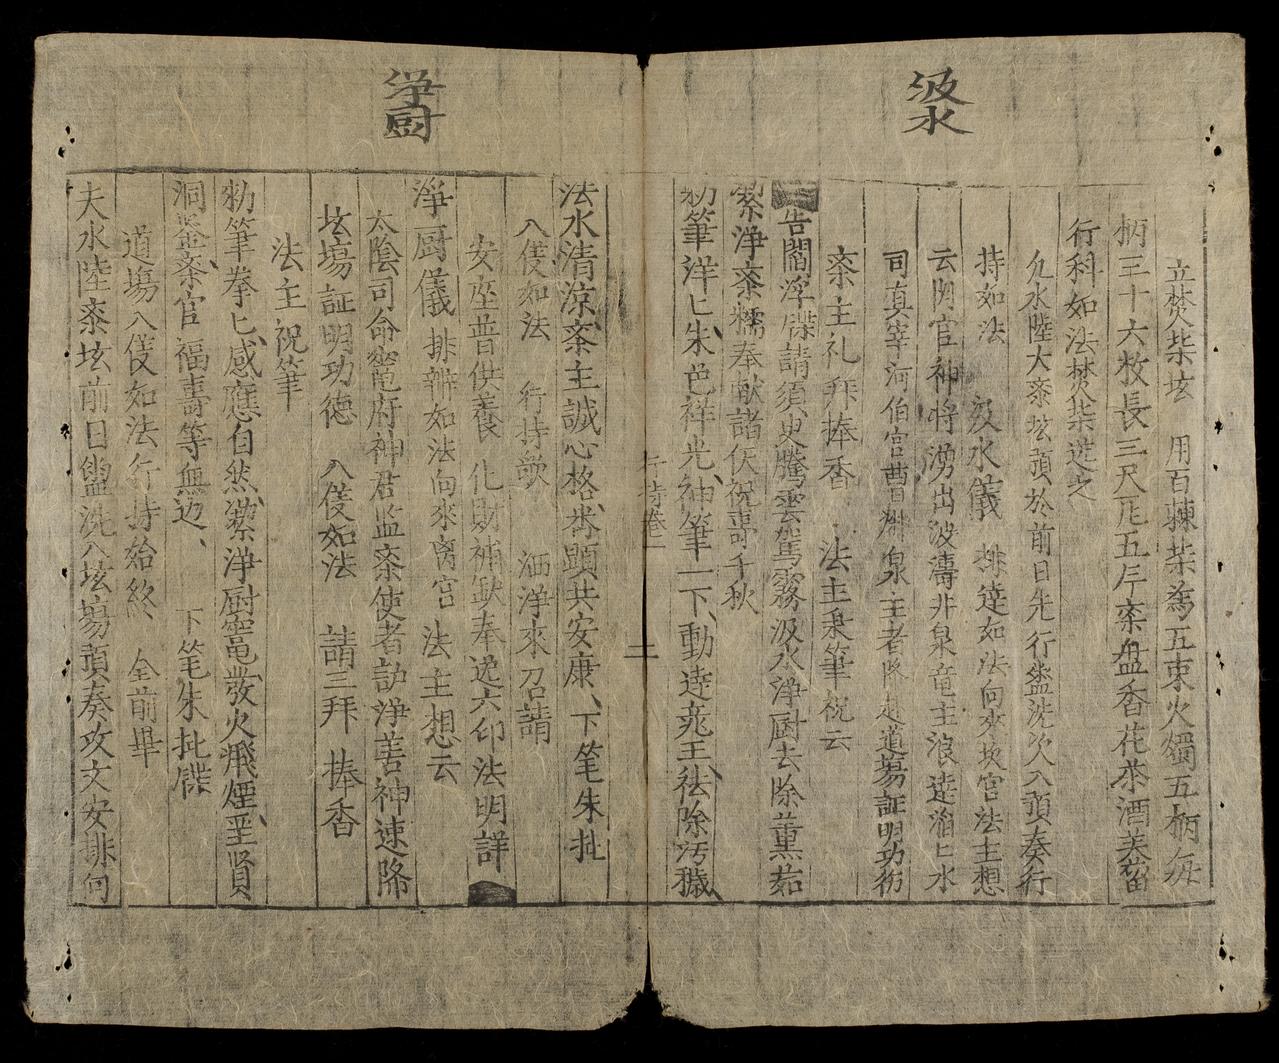 汲水
立焚柴坛 用百棘柴為五束火獨五柄每
柄三十六枚長三尺疋五斤斋盘香花茶酒美畄
行科如法焚柴進之
九水陸大斋坛預於前日先行盥洗次入預奏行
持如法 汲水儀 排達如法向來坎宫法主想
云閉官神将湧出波濤井泉竜主浪達滔匕水
司真宰河伯宫酋掰泉主者降赴道塲証明功彷
斋主礼拜捧香 法主秉筆祝云
告閻浮牒請須臾騰雲駕霧汲水淨厨去除薰茹
縈淨斋糯奉献諸伏祝壽千秋
勑筆洋匕朱色祥光、神筆一下、動達竜王、祛除污穢、
行持卷一
二
淨厨
法水清涼、斋主誠心格、番顕共安康、下笔朱批
入𠋣如法 行持歌 洒淨來召請
安座普供養 化財補缺奉送六印法明詳
淨厨儀 排辦如法向來离宫 法主想云
太陰司命竈府神君监斋使者訪淨善神速降
坛塲証明功德 入𠋣如法 請三拜 捧香
法主祝筆
勑筆拳匕、感應自然、縈淨厨竈、發火飛煙、聖賢
洞鉴、斋官福壽等無边、 下笔朱批牒
道塲入𠋣如法行持始終、 全前畢
夫水陸斋坛前日盥洗入坛塲預奏攻文安排何